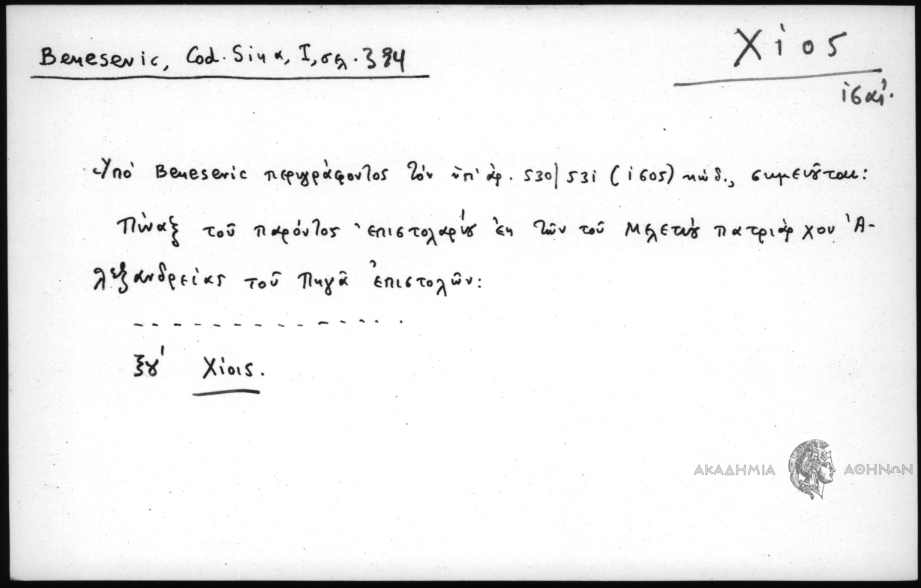 Benesevic, Cod. Sina, I, σελ. 394
Χίος
ις αἰ.
Ὑπὸ Benesevic περιγράφοντος τὸν ὑπ' ἀρ. 530/531 (1605) κώδ., σημειοῦται:
Πίναξ τοῦ παρόντος ἐπιστολαρίου ἐκ τῶν τοῦ Μελετίου πατριάρχου Ἀ-
λεξανδρείας τοῦ Πηγᾶ ἐπιστολῶν:
- - - - - - - - - - - - - -
ξγ' Χίοις.
ΑΚΑΔΗΜΙΑ ΑΘΗΝΩΝ